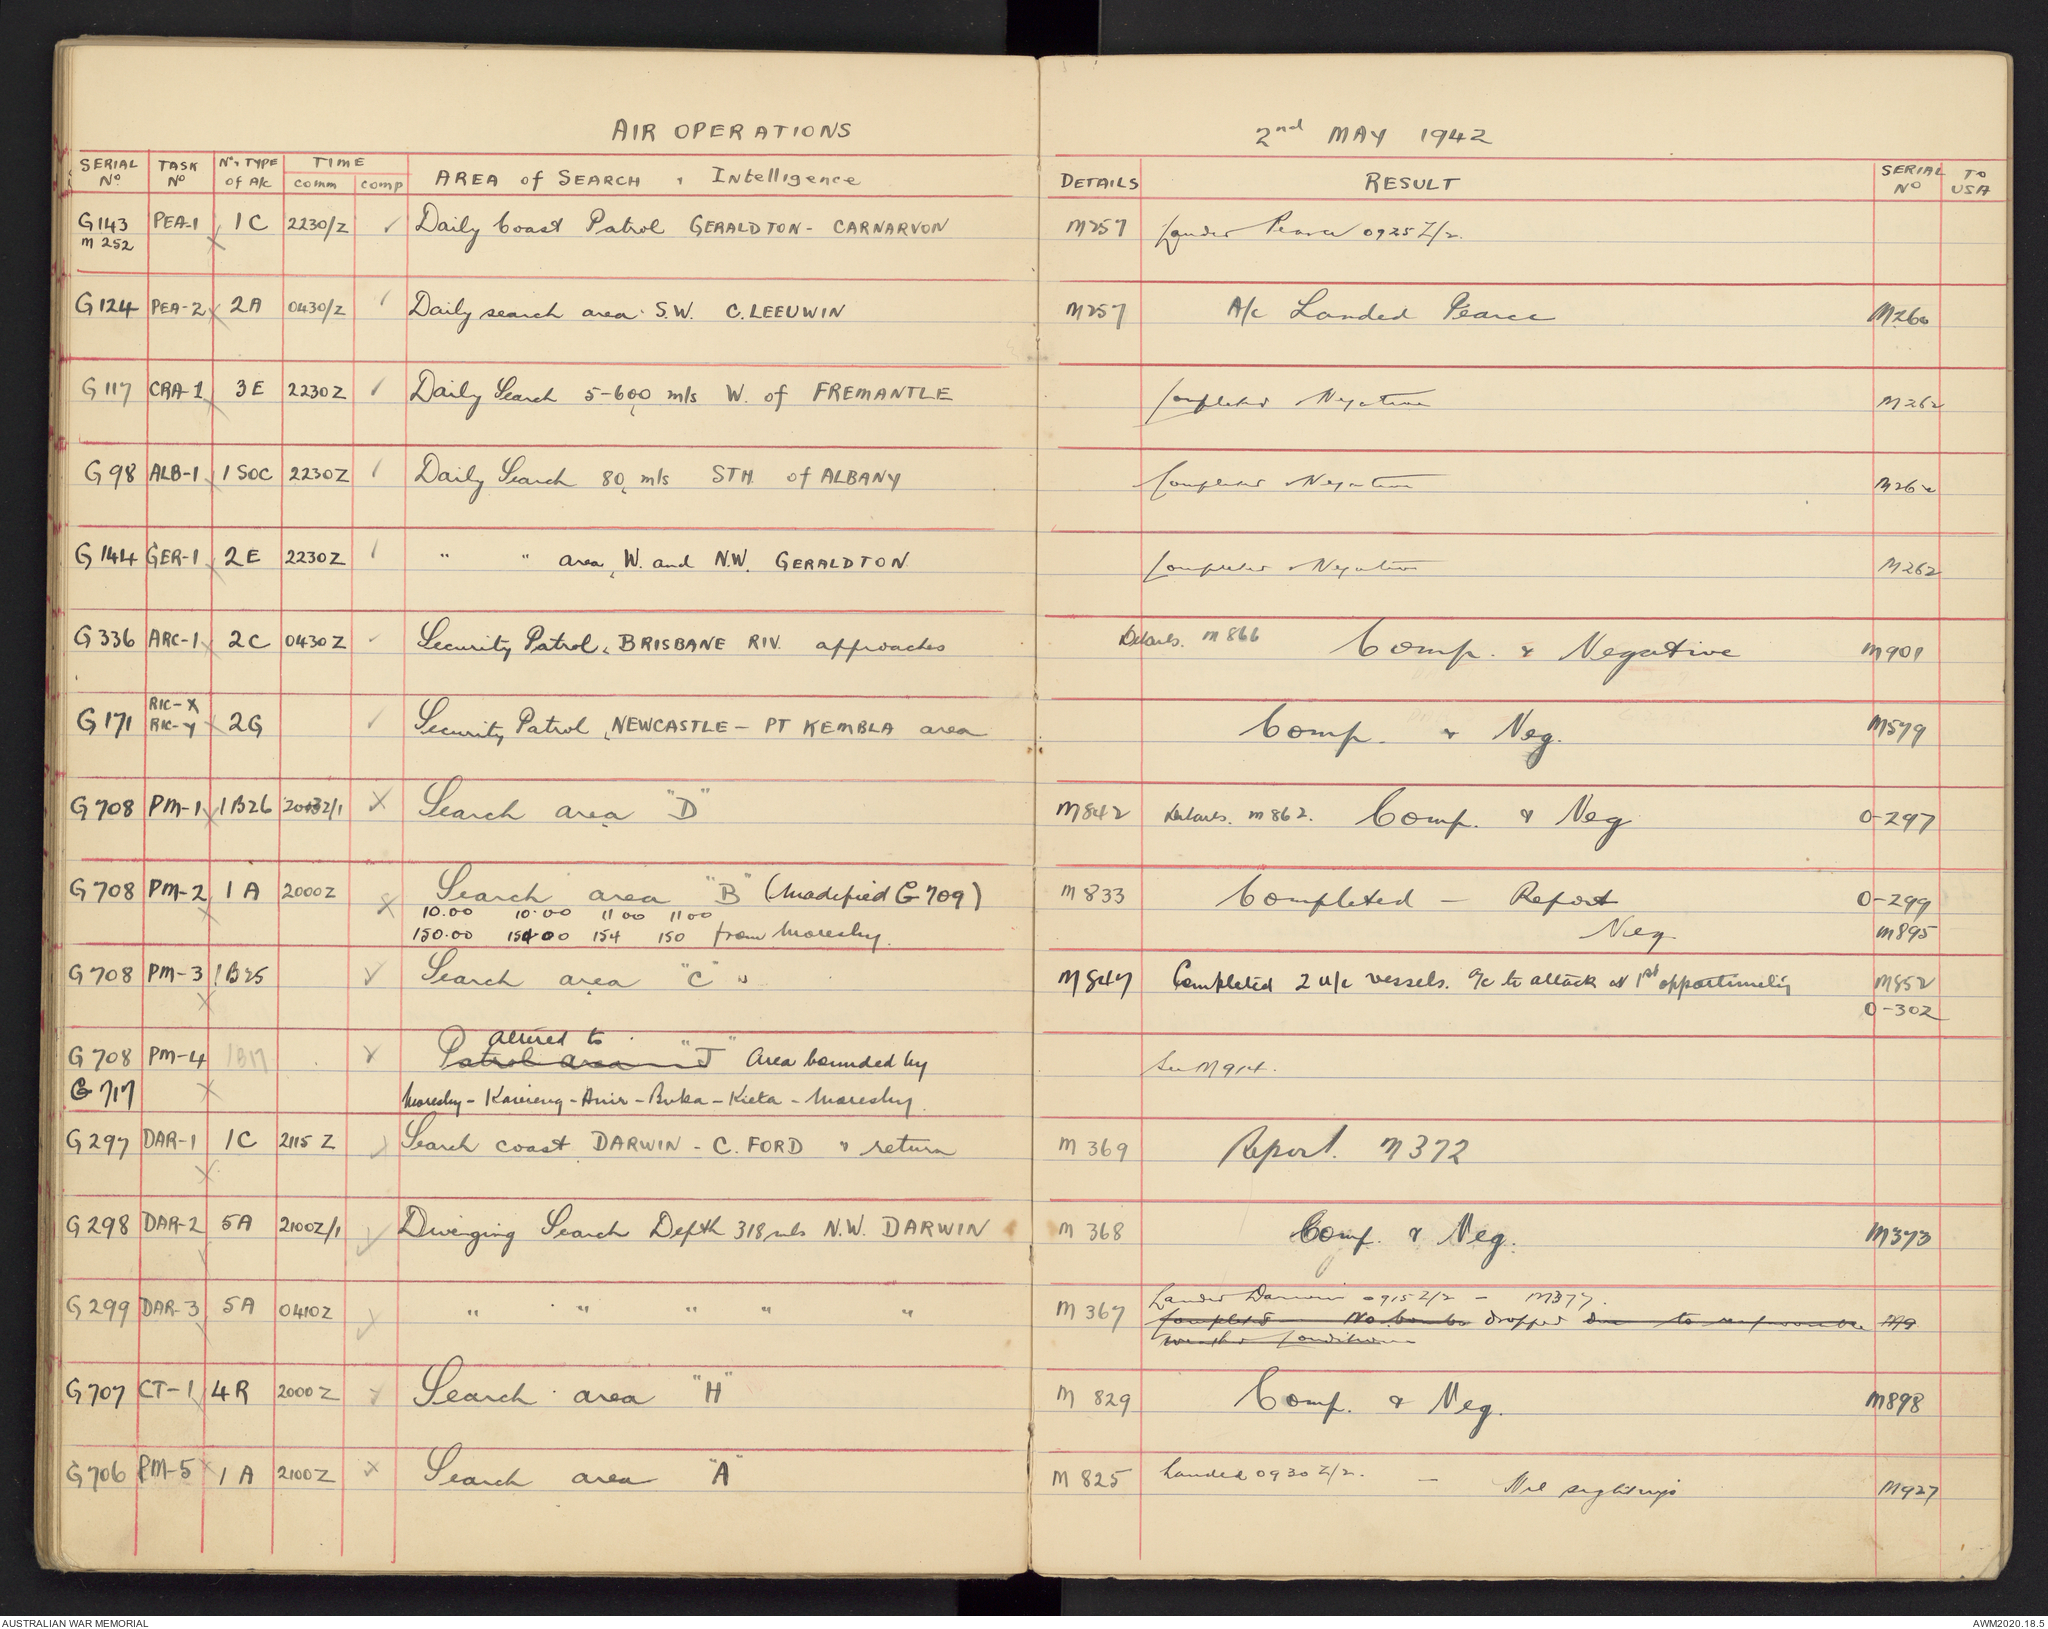 AIR OPERATIONS
2nd MAY 1942
SERIAL No TASK No No. TYPE of A/c TIME comm comp AREA of SEARCH & Intelligence DETAILS RESULT SERIAL No TO USA
G143 PEA-1 1C 2230/Z ✓ Daily Coast Patrol GERALDTON - CARNARVON M257 Landed Pearce 0925Z/2.
M 252 X
G124 PEA-2 X 2A 0430/Z ✓ Daily search area S.W. C. LEEUWIN M257 A/c Landed Pearce M260
G117 CRA-1 3E 2230Z ✓ Daily Search 5-600 mls W. of FREMANTLE Completed Negative M262
G98 ALB-1 X 1 SOC 2230Z ✓ Daily Search 80 mls STH. of ALBANY Completed Negative M262
G144 GER-1 X 2E 2230Z ✓ " " area W. and N.W. GERALDTON Completed Negative M262
G336 ARC-1 X 2C 0430Z ✓ Security Patrol, BRISBANE RIV. approaches Details. M866 Comp. & Negative M901
RIC-X
G171 RIC-Y X 2G ✓ Security Patrol, NEWCASTLE - PT KEMBLA area Comp. & Neg. M579
G708 PM-1 X 1B26 X Search area "D" M842 Details. M862. Comp. & Neg 0-297
G708 PM-2 1A 2000Z X Search area "B" (Modified G709) M833 Completed - Report 0-299
X 10.00 10.00 11 00 11 00
150.00 154 150 from Moresby. Neg. M895
G708 PM-3 1B25 ✓ Search area "C" M847 Completed 2 vessels. A/c to attack at 1st opportunity M852
X 0-302
altered to
G708 PM-4 1B17 ✓ Patrol area "J" Area bounded by See M914.
G717 X Moresby - Kavieng - Buka - Kieta - Moresby.
G297 DAR-1 1C 2115 Z ✓ Search coast DARWIN - C. FORD & return M369 Report. M372
X
G298 DAR-2 5A 2100Z/1 ✓ Diverging Search Depth 318 mls N.W. DARWIN M368 Comp. & Neg. M373
Landed Darwin 0915Z/2 - M377.
G299 DAR-3 5A 0410Z ✓ " " " " " M367 Completed No bombs dropped due to unfavourable
weather conditions
G707 CT-1 4R 2000Z ✓ Search area "H" M829 Comp. & Neg. M898
G706 PM-5 X 1A 2100Z X Search area "A" M825 Landed 0930Z/2. - Nil sightings M927
AUSTRALIAN WAR MEMORIAL
AWM2020.18.5